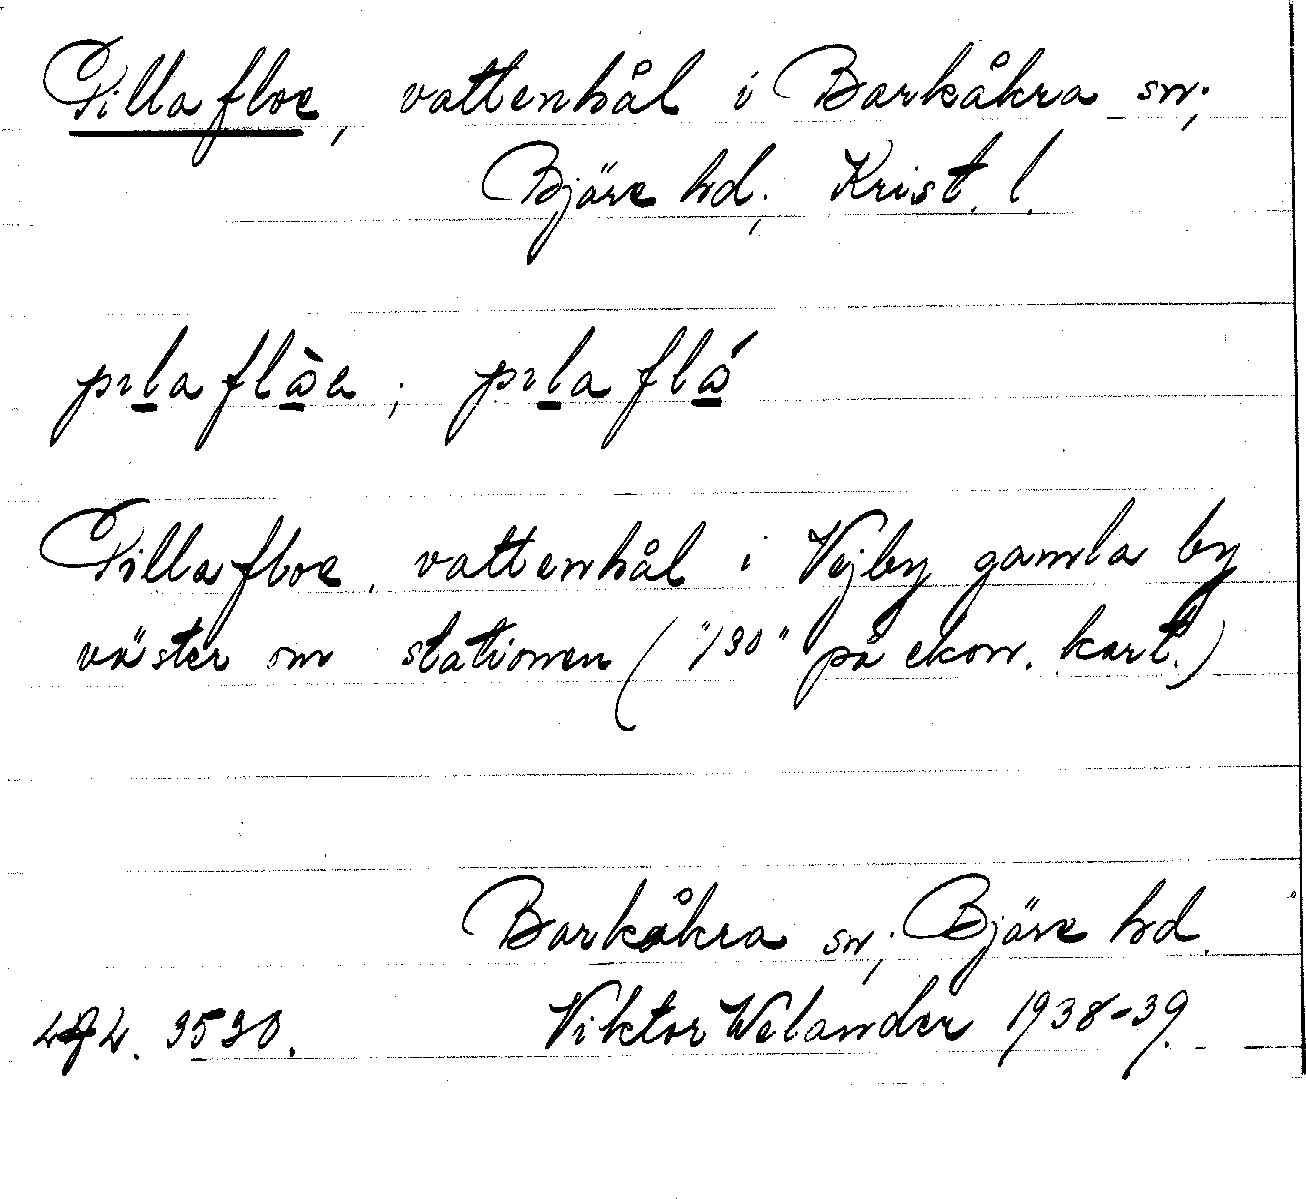 Pillafloe, vattenhål i Barkåkra sn;
Bjäre hd; Krist. l.
pılaflòa ; pılafló
Pillafloe, vattenhål i Vejby gamla by
väster om stationen ("130" på ekon. kart.)
Barkåkra sn; Bjäre hd.
3530. Viktor Welander 1938-39.